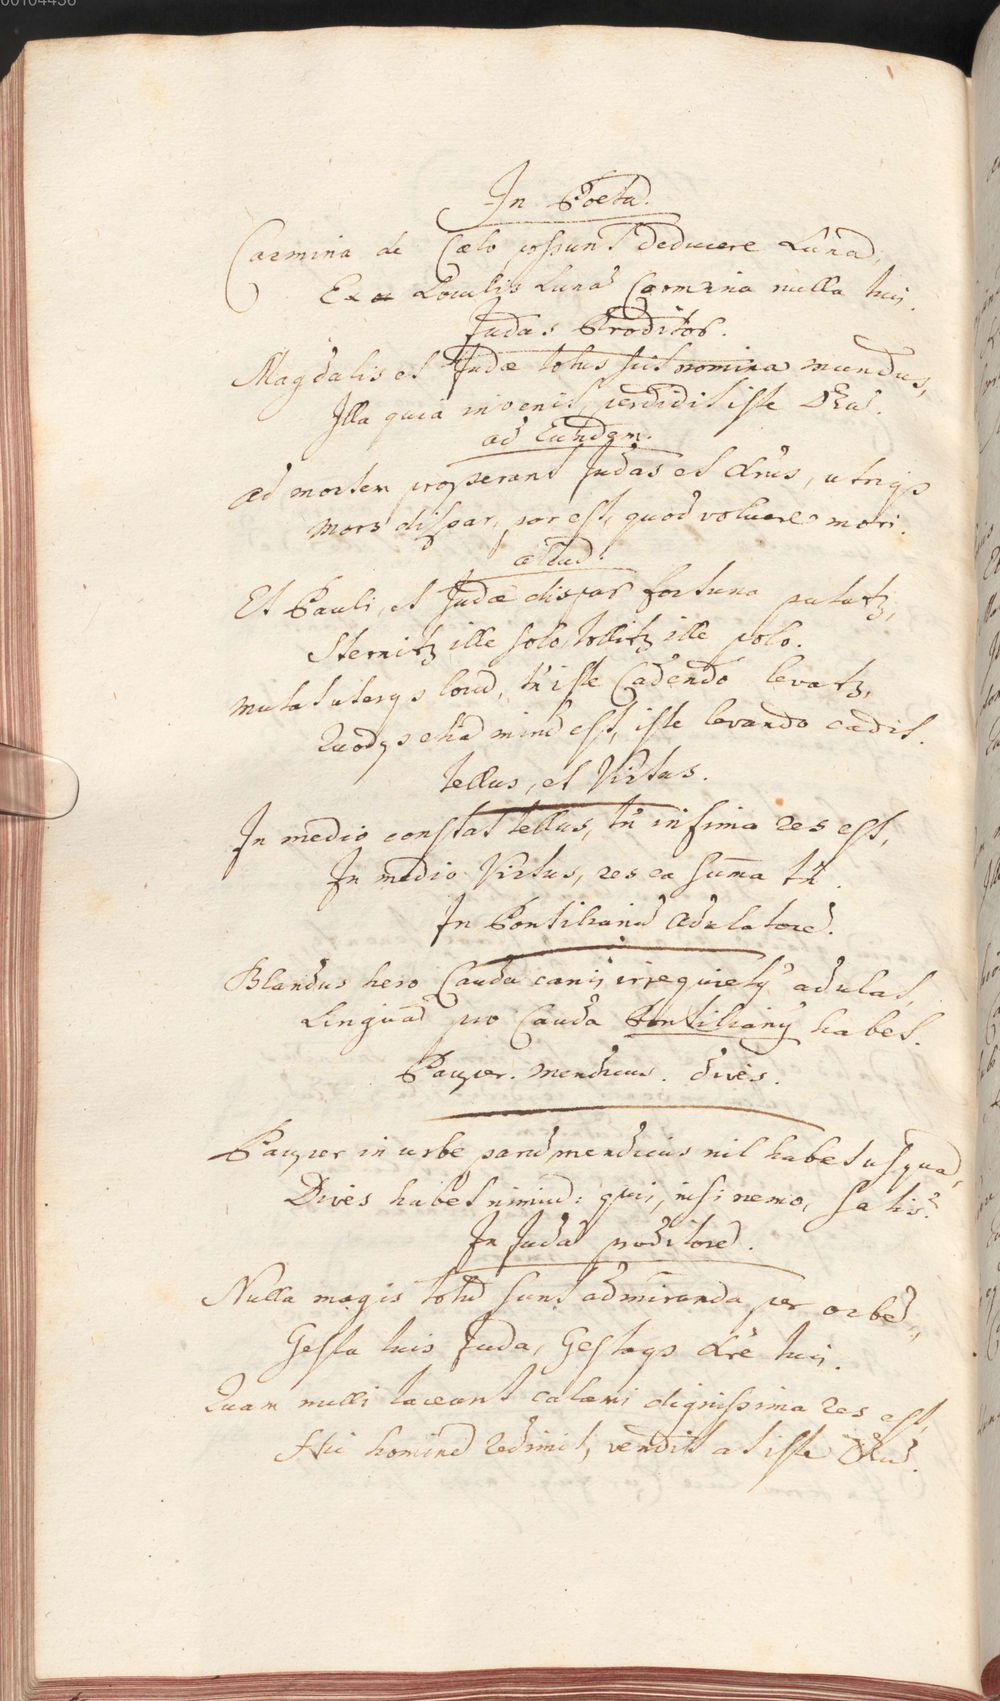 00104436
In Poetā.
Carmina de Cælo possunt deducere Lunā,
Ex Loculis Lunā Carmina nulla tuis.
Judas Proditor.
Magdalis et Judæ totus scit nomina mundus,
Illa quia invenit, perdidit iste Deū.
ad Eundem.
Ad mortem properant Judas et Xtus, utriqȝ
Mors dispar, par est, quod voluere mori.
aliud.
Et Pauli, et Judæ dispar fortuna putatȝ,
Sternitȝ ille solo, tollitȝ ille polo.
Mutat uterqȝ locū, tn̄ iste Cadendo levatȝ,
Quodqȝ etiā mirū est, iste levando cadit.
Tellus, et Virtus.
In medio constat tellus, tn̄ infima res est,
In medio Virtus, res ea sum̄a tn̄.
In Pontilianū adulatorē.
Blandus hero Cauda canis irrequietꝰ adulat,
Linguā pro Cauda Pontilianꝰ habet.
Pauper. Mendicus. dives.
Pauper in urbe parū, mendicus nil habet usquā,
Dives habet nimiū: quis, nisi nemo, satis?
In Judā proditorē.
Nulla magis totū sunt admiranda per orbē,
Gesta tuis Juda, Gestaqȝ Xte tuis.
Quam nulli taceant calami dignissima res est,
Hic hominē redimit, vendit at iste Deū.